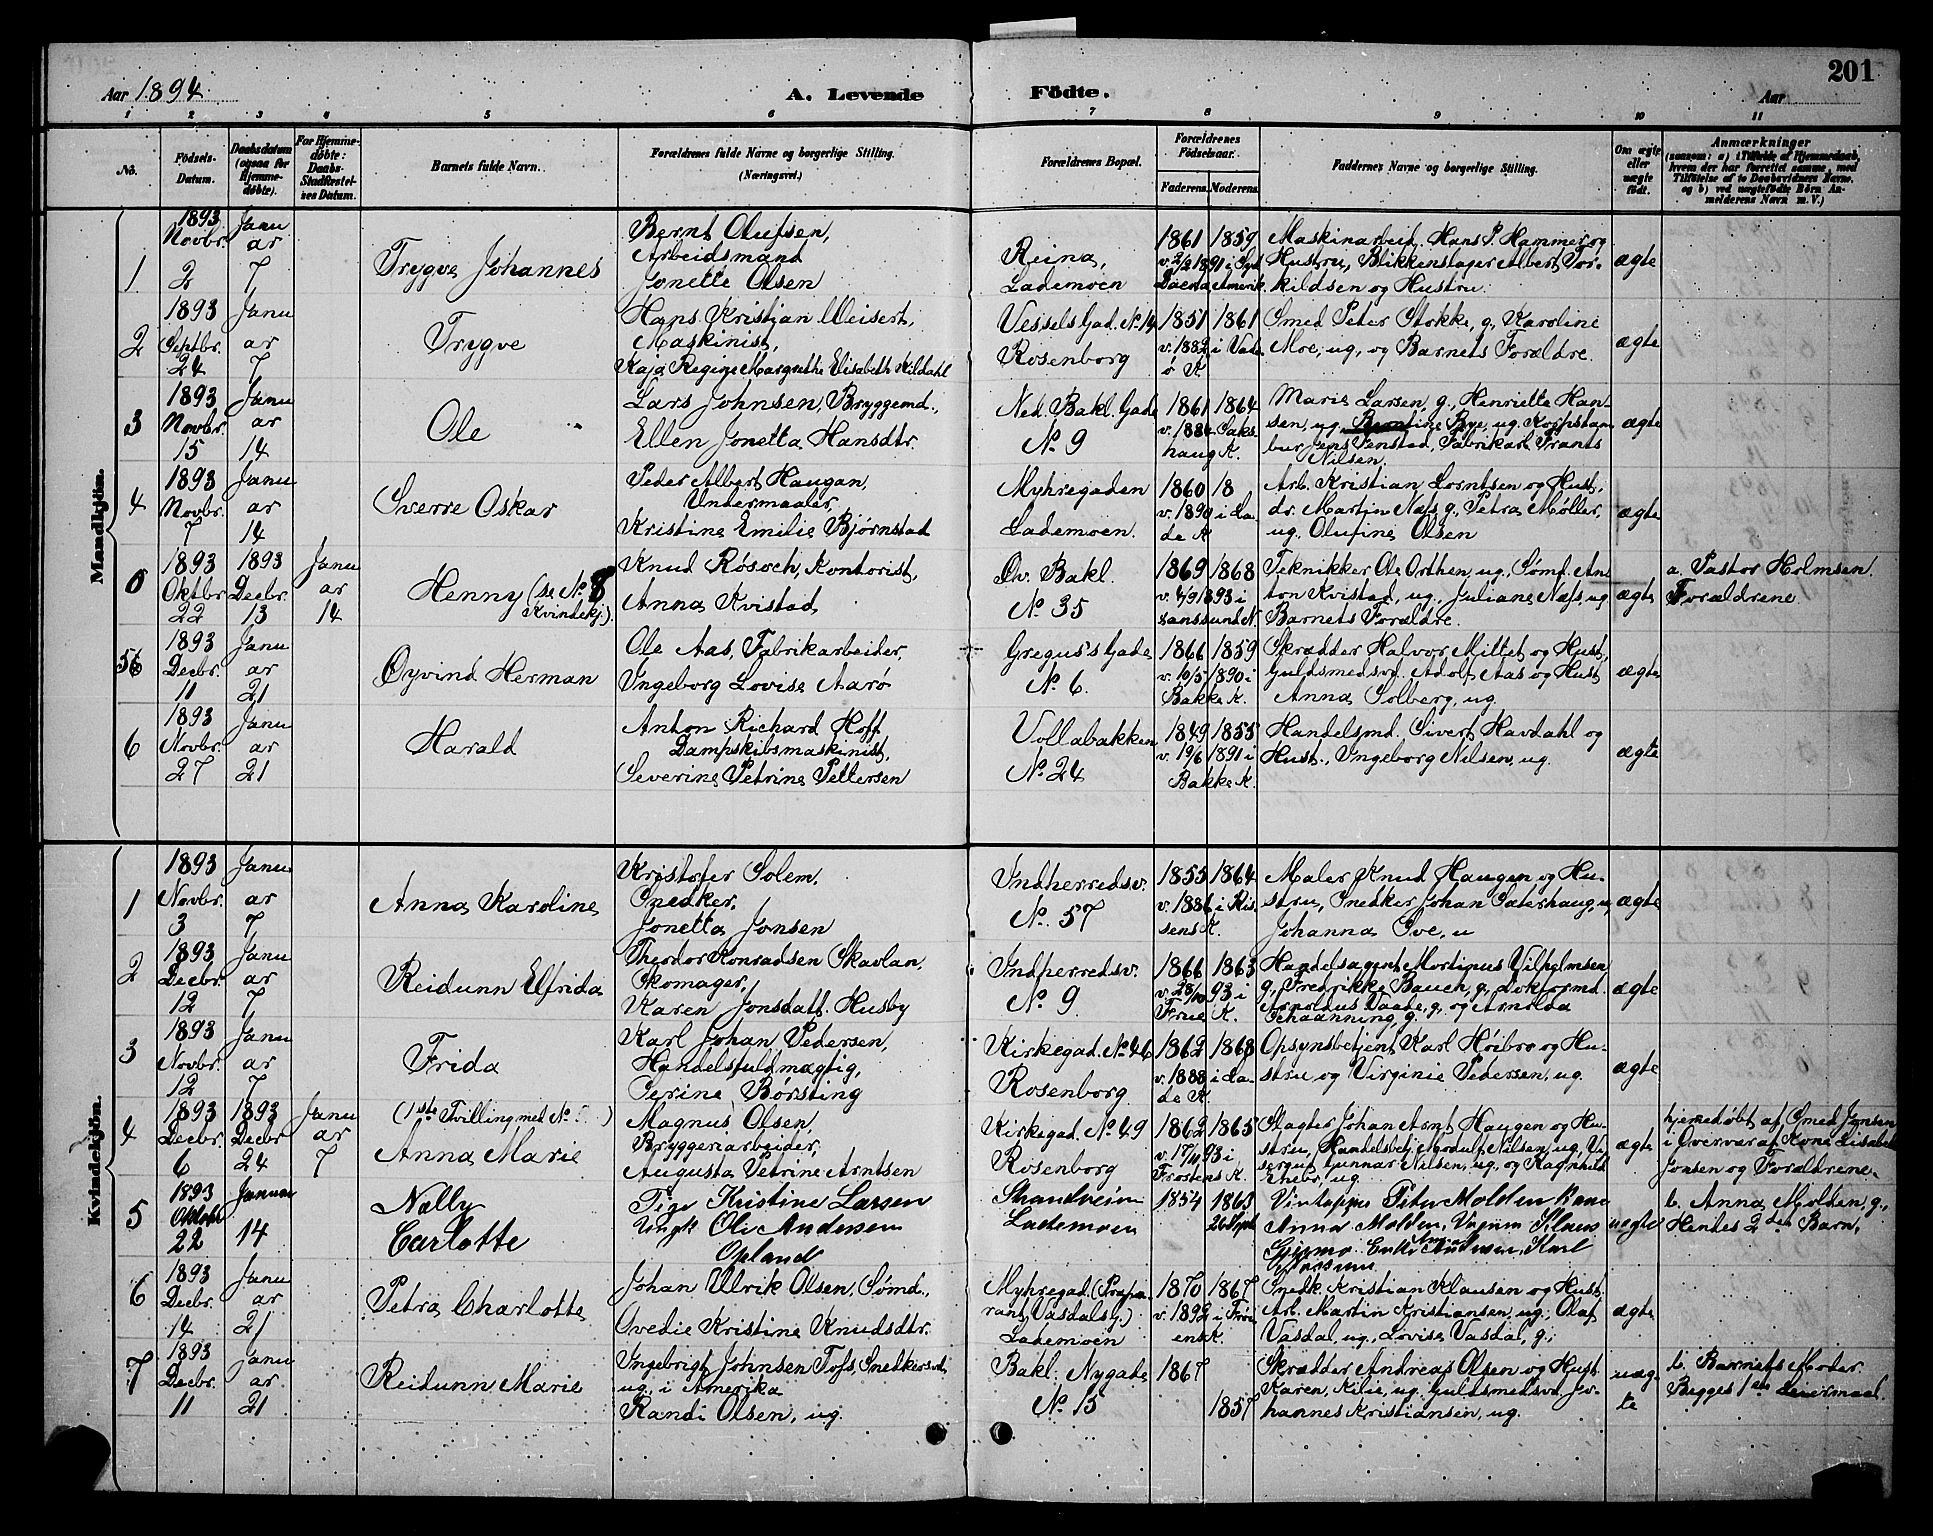 201
Aar 1894.
A. Levende Födte.
Aar
1 2 3 4 5 6 7 8 9 10 11
No.
Födsels-Datum.
Daabsdatum (ogsaa for Hjemme-døbte).
For Hjemme-døbte: Daabs-Stadfæstel-ses Datum.
Barnets fulde Navn.
Forældrenes fulde Navne og borgerlige Stilling.
(Næringsvei.)
Forældrenes Bopæl.
Forældrenes Födselsaar.
Faderens. Moderens.
Faddernes Navne og borgerlige Stilling.
Om ægte eller uægte født.
Anmærkninger
(saasom: a) i Tilfælde af Hjemmedaab, hvem der har forrettet samme, med Tilføielse af to Daabsvidners Navne, og b) ved uægtefødte Börn Anmelderens Navn m. V.)
Mandkjön.
1
1893 Novbr. 2
Januar 7
Trygve Johannes
Bernt Olufsen,
Arbeidsmand
Jonette Olsen
Reina,
Lademoen
1861 1859
Maskinarbeid. Hans P. Hammer og
Hustru, Blikkenslager Albert Tor-
kildsen og Hustru.
ægte
2
1893 Septbr. 24
Januar 7
Trygve
Hans Kristjan Meisert,
Maskinist,
Kaja Regine Margrethe Elisabeth Kildahl
Vessels Gad. No 14
Rosenborg
1851 1861
v. 1882 i Vadsø K.
Smed Peter Stokke, g, Karoline
Moe, ug, og Barnets Forældre.
ægte
3
1893 Novbr. 15
Januar 14
Ole
Lars Johnsen, Bryggemd.,
Ellen Jonetta Hansdtr.
Ned. Bakl. Gade
No 9
1861 1864
v. 1884 Saks-
haug K.
Marie Larsen, g., Henriette Han-
sen, ug, Berntine Bye, ug, Korpstam-
bur Jens Tenstad, Fabrikarb. Frants
Nilsen.
ægte
4
1893 Novbr. 7
Januar 14
Sverre Oskar
Peder Albert Haugan,
Undermaaler,
Kristine Emilie Bjørnstad
Myhregaden
Lademoen.
1860 18
v. 1890 i La-
de K
Arb. Kristian Lorntsen og Hust,
dr. Martin Næss g., Petra Møller,
ug. Olufine Olsen
ægte
0
1893 Oktbr 22
1893 Decbr. 13
Januar 14
Henny (se No. 8 Kvindekj.)
Knud Røsoch, Kontorist,
Anna Kvistad,
Øv. Bakl.
No 35
1869 1868
v. 4/9 1893 i
Teknikker Ole Orthen, ug., Sømd. An-
ton Kvistad, ug., Juliane Næss, ug
Barnets Forældre.
ægte
a. Pastor Holmsen.
Forældrene.
5
1893 Decbr. 11
Januar 21
Øyvind Herman
Ole Aas, Fabrikarbeider,
Ingeborg Lovise Aarø
Gregus's Gade
No 6.
1866 1859
v. 10/5 1890 i
Bakke K.
Skrædder Halvor Mittet og Hust,
Guldsmedsvd. Adolf Aas og Hust
Anna Solberg, ug.
ægte
6
1893 Novbr. 27
Januar 21
Harald
Anton Richard Hoff
Dampskibsmaskinist,
Severine Petrine Pettersen
Vollabakken
No 24
1849 1855
v. 19/6 1891 i
Bakke K.
Handelsmd. Sivert Havdahl og
Hust., Ingeborg Nilsen, ug.
ægte
Kvindekjön.
1
1893 Novbr. 3
Januar 7
Anna Karoline
Kristofer Solem,
Snedker,
Jonetta Jonsen
Indherredsv.
No. 57
1855 1864
v. 1886 i Ris-
sens K.
Maler Knud Haugen og Hu-
stru, Snedker Johan Sæterhaug, u,
Johanna Sve, u
ægte
2
1893 Decbr. 12
Januar 7
Reidunn Elfrida
Theodor Konradsen Skavlan,
Skomager,
Karen Jonsdatt. Husby
Indherredsv.
No 9
1866 1863
v. 28/10 93 i
Frue K.
Handelsagent Mortinus Vilhelmsen
g, Fredrikke Bauch, g, Doktormd.
Arnoldus Vaade, g, og Arnolda
Schaanning, g.
ægte
3
1893 Novbr. 12
Januar 7
Frida
Karl Johan Pedersen,
Handelsfuldmægtig,
Serine Børsting
Kirkegad. No 46
Rosenborg
1862 1868
v. 1888 i La-
de K.
Opsynsbetjent Karl Høibro og Hu-
stru og Virginie Pedersen, ug.
ægte
4
1893 Decbr. 6
1893 Decbr. 24
Januar 7
(1ste Tvilling med No. )
Anna Marie
Magnus Olsen,
Bryggeriarbeider,
Augusta Petrine Arntsen
Kirkegad. No 49
Rosenborg
1862 1865
v. 17/11 93 i
Frostens K.
Slagter Johan Arnt Haugen og Hu-
stru, Handelsbetj. Modulf Nilsen, ug,
Gunnar Nilsen, ug, og Ragnhild
ug
ægte
hjemedøbt af Smed Jonsen
i Overvær af Kone Lisabet
Jonsen og Forældrene.
5
1893 Oktobr 22
Januar 14
Nelly
Carlotte
Pige Kristine Larsen
Ungk. Ole Andersen
Opland
Strandheim
Lademoen
1854 1863
26 Septb
Peter Molden
Anna Molden, Klaus
Karl
uegte
b. Anna Molden, g.,
Hendes 2det Barn.
6
1893 Decbr. 14
Januar 21
Petra Charlotte
Johan Ulrik Olsen, Sømd.,
Ovedie Kristine Knudsdtr.
Myhregad. (Præpa-
rant Vasdalsg.)
Lademoen
1870 1867
v. 1892 i
ens K.
Snedk. Kristian Klausen og Hust,
Arb. Martin Kristiansen, ug, Olaf
Vasdal, ug., Lovise Vasdal, g.;
ægte
7
1893 Decbr. 11
Januar 21
Reidunn Marie
Ingebrigt Johnsen Tofs, Snedkersvd.
ug., i Amerika
Randi Olsen, ug.
Bakl. Nygade
No 15
1867
1857
Skrædder Andreas Olsen og Hust
Karen Kilie, ug, Guldsmedsvd. Jo-
hannes Kristiansen, ug.
uæg-
te
b. Barnets Moder.
Begges 1ste Leiermaal.